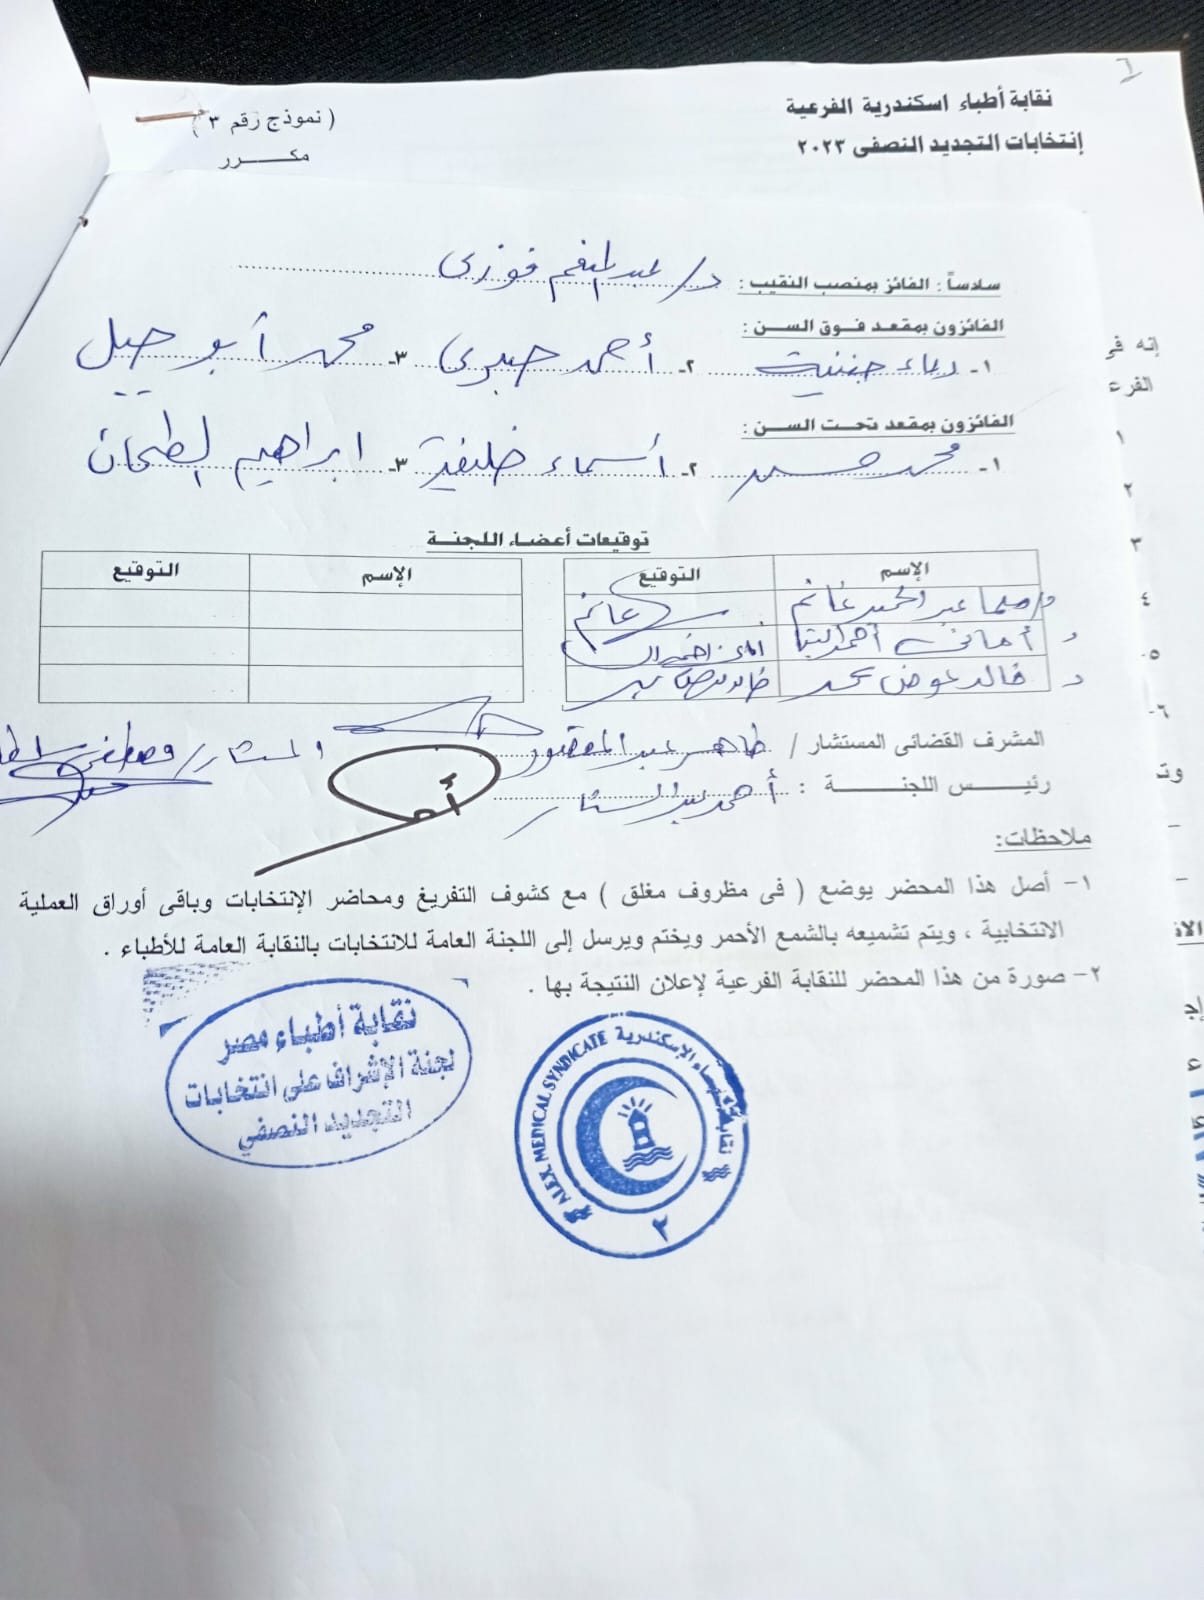 نقابة أطباء اسكندرية الفرعية
إنتخابات التجديد النصفى ٢٠٢٣
( نموذج رقم ٣ )
مكـــــرر
سادساً : الفائز بمنصب النقيب : د/ عبد المنعم فوزى
الفائزون بمقعد فـوق الســن :
١- دعاء جنينة ٢- أحمد صبرى ٣- محمد أبو
الفائزون بمقعد تحـت الســن :
١- محمد ٢- أسماء خليفة ٣- ابراهيم الطحان
توقيعات أعضـاء اللجنـة
الإسم التوقيع الإسم التوقيع
عبد الحميد غانم غانم
د أمانى أحمد
د خالد عوض محمد خالد
المشرف القضائى المستشار / طاهر عبد المقصود المستشار/ مصطفى
رئيـــس اللجنـــــة : أحمد عبد الستار
ملاحظات:
١- أصل هذا المحضر يوضع ( فى مظروف مغلق ) مع كشوف التفريغ ومحاضر الإنتخابات وباقى أوراق العملية
الانتخابية ، ويتم تشميعه بالشمع الأحمر ويختم ويرسل إلى اللجنة العامة للانتخابات بالنقابة العامة للأطباء .
٢- صورة من هذا المحضر للنقابة الفرعية لإعلان النتيجة بها .
نقابة أطباء مصر
لجنة الإشراف على انتخابات
التجديد النصفي
ALEX. MEDICAL SYNDICATE
نقابة أطباء الإسكندرية
٢
إنه فى
الفرع
١
٢
٣
٤
٥-
٦-